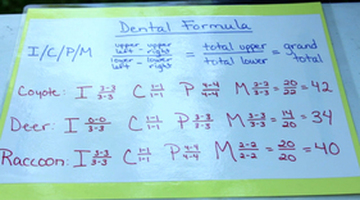 Dental Formula
I/C/P/M upper left - upper right / lower left - lower right = total upper / total lower = grand total
Coyote: I 3-3/3-3 C 1-1/1-1 P 4-4/4-4 M 2-2/3-3 = 20/22 = 42
Deer: I 0-0/3-3 C 1-1/1-1 P 3-3/3-3 M 3-3/3-3 = 14/20 = 34
Raccoon: I 3-3/3-3 C 1-1/1-1 P 4-4/4-4 M 2-2/2-2 = 20/20 = 40